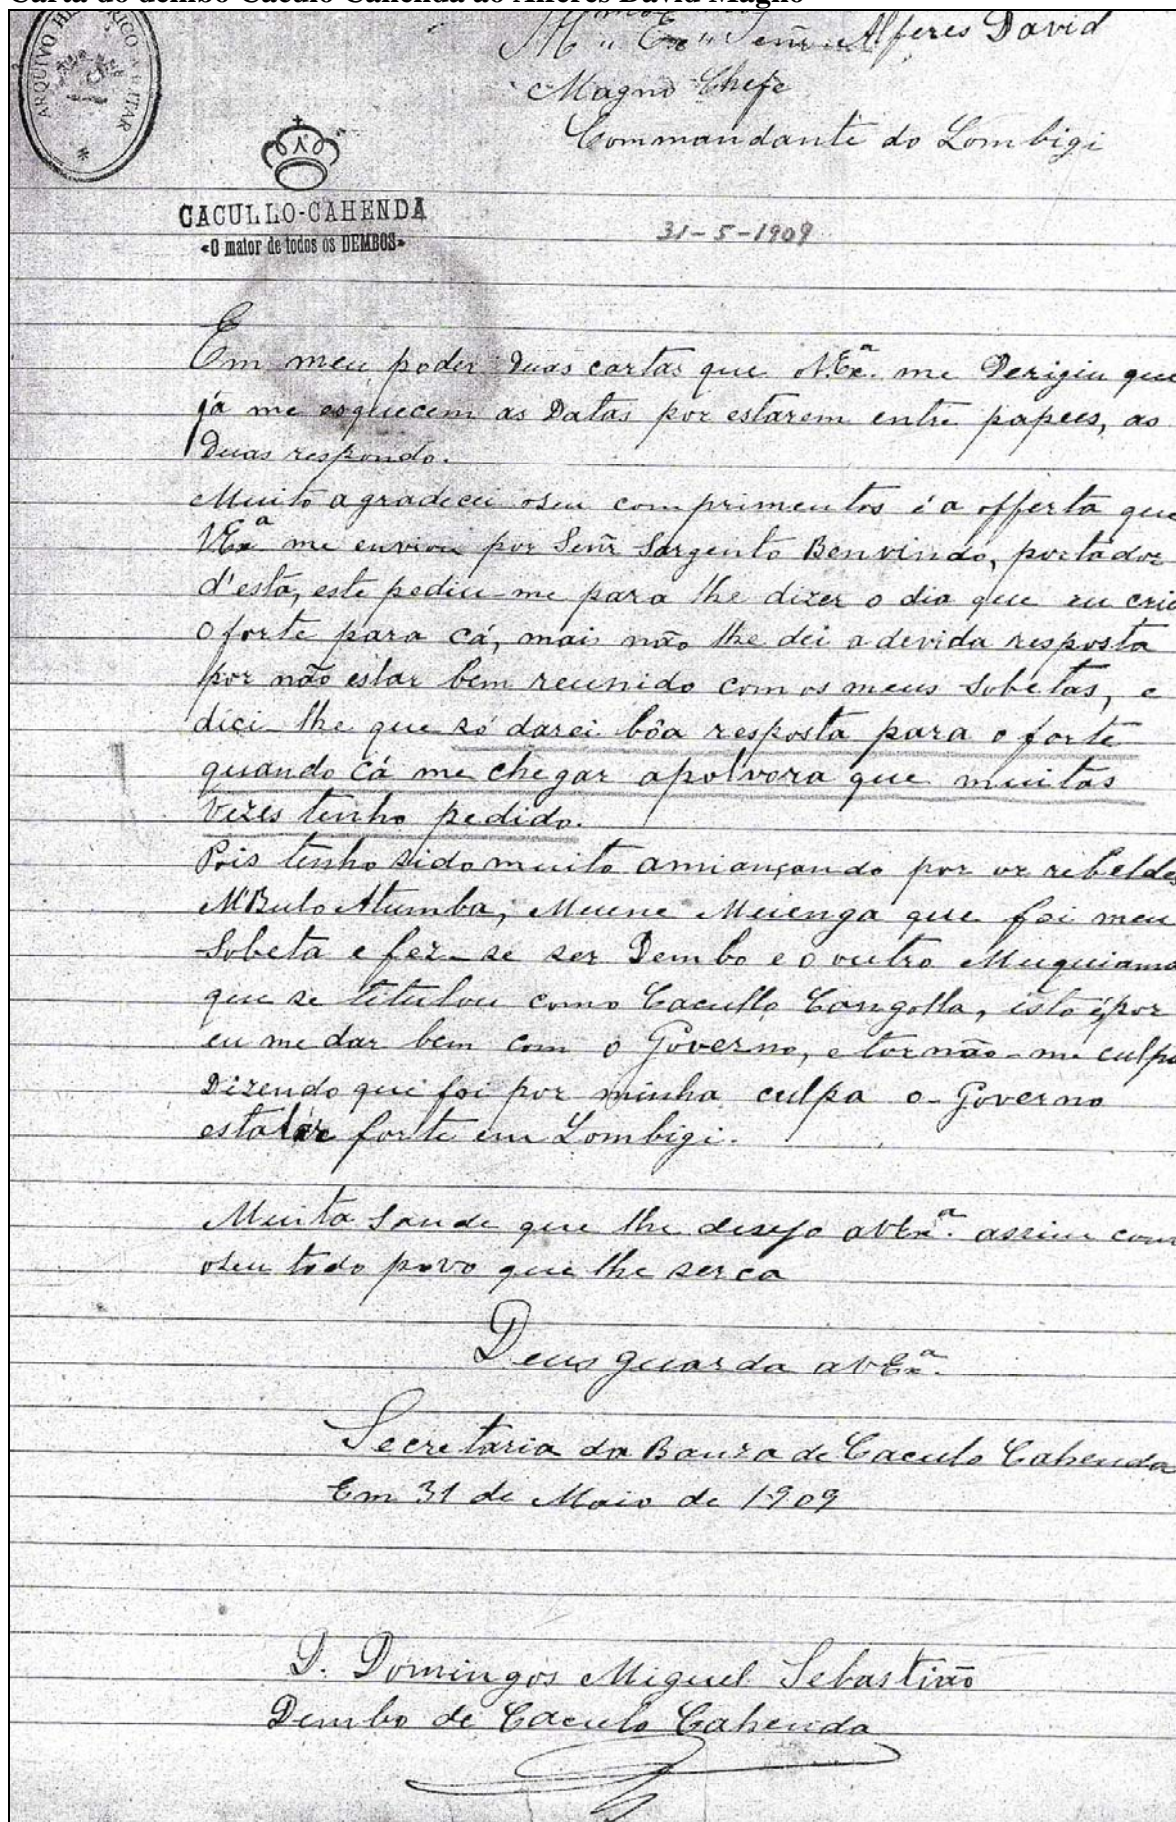 Carta do dembo Caculo Cahenda ao Alferes David Magno
Senr Alferes David
Magno Chefe
Commandante do Lombigi
ARQUIVO HISTÓRICO MILITAR
CACULLO-CAHENDA
«O maior de todos os DEMBOS»
31-5-1909
Em meu poder duas cartas que V.Exª. me Derigiu que
já me esquecem as Datas por estarem entre papeis, as
Duas respondo.
Muito agradeceu oseu comprimentos é a offerta que
VExª me enviou por Senr Sargento Benvindo, portador
d'esta, este pediu-me para lhe dizer o dia que eu crio
O forte para cá, mais não lhe dei a devida resposta
por não estar bem reunido com os meus Sobetas, e
dici-lhe que só darei bôa resposta para o forte
quando cá me chegar apolvora que muitas
vezes tenho pedido.
Pois tenho sido muito amiançando por os ribelde
M'Bulo Atumba, Muene Muenga que foi meu
Sobeta e fez-se ser Dembo e o outro Muquiama
que se titulou como Cacullo Cangolla, isto é por
eu me dar bem com o Governo, e tornão-me culpa
Dizendo qui foi por minha culpa o-Governo
estalar forte em Lombigi.
Muita Saude que lhe desejo aVExª. assim com
oseu todo povo que lhe serca
Deus guarda aVExª.
Secretaria da Banza de Caculo Cahenda
Em 31 de Maio de 1909
D. Domingos Miguel Sebastião
Dembo de Caculo Cahenda